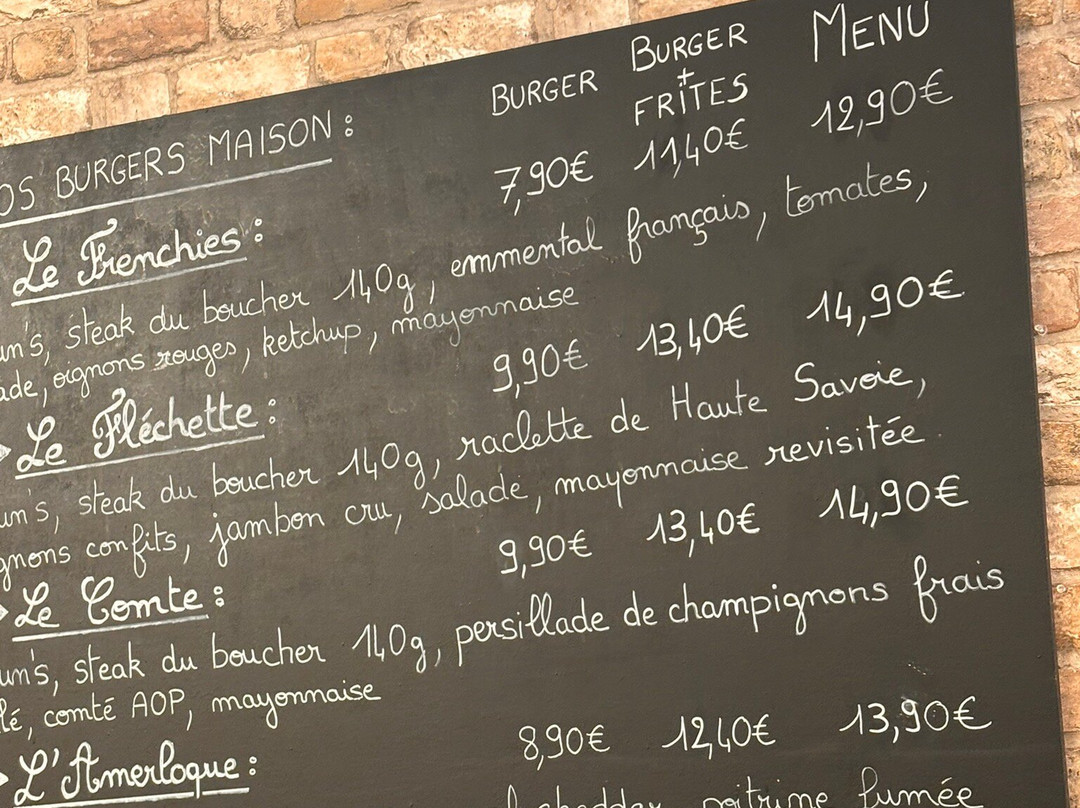 OS BURGERS MAISON : BURGER BURGER + FRITES MENU
Le Frenchies : 7,90€ 11,40€ 12,90€
un's, steak du boucher 140g, emmental français, tomates,
ade, oignons rouges, ketchup, mayonnaise
Le Fléchette : 9,90€ 13,40€ 14,90€
un's, steak du boucher 140g, raclette de Haute Savoie,
gnons confits, jambon cru, salade, mayonnaise revisitée.
Le Comte : 9,90€ 13,40€ 14,90€
un's, steak du boucher 140g, persillade de champignons frais
lé, comté AOP, mayonnaise
L'Amerloque : 8,90€ 12,40€ 13,90€
cheddar, poitrine fumée